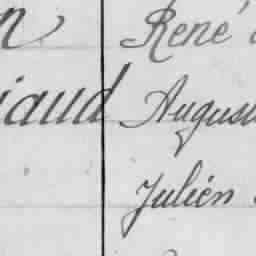 n René
iaud Augus
Julien